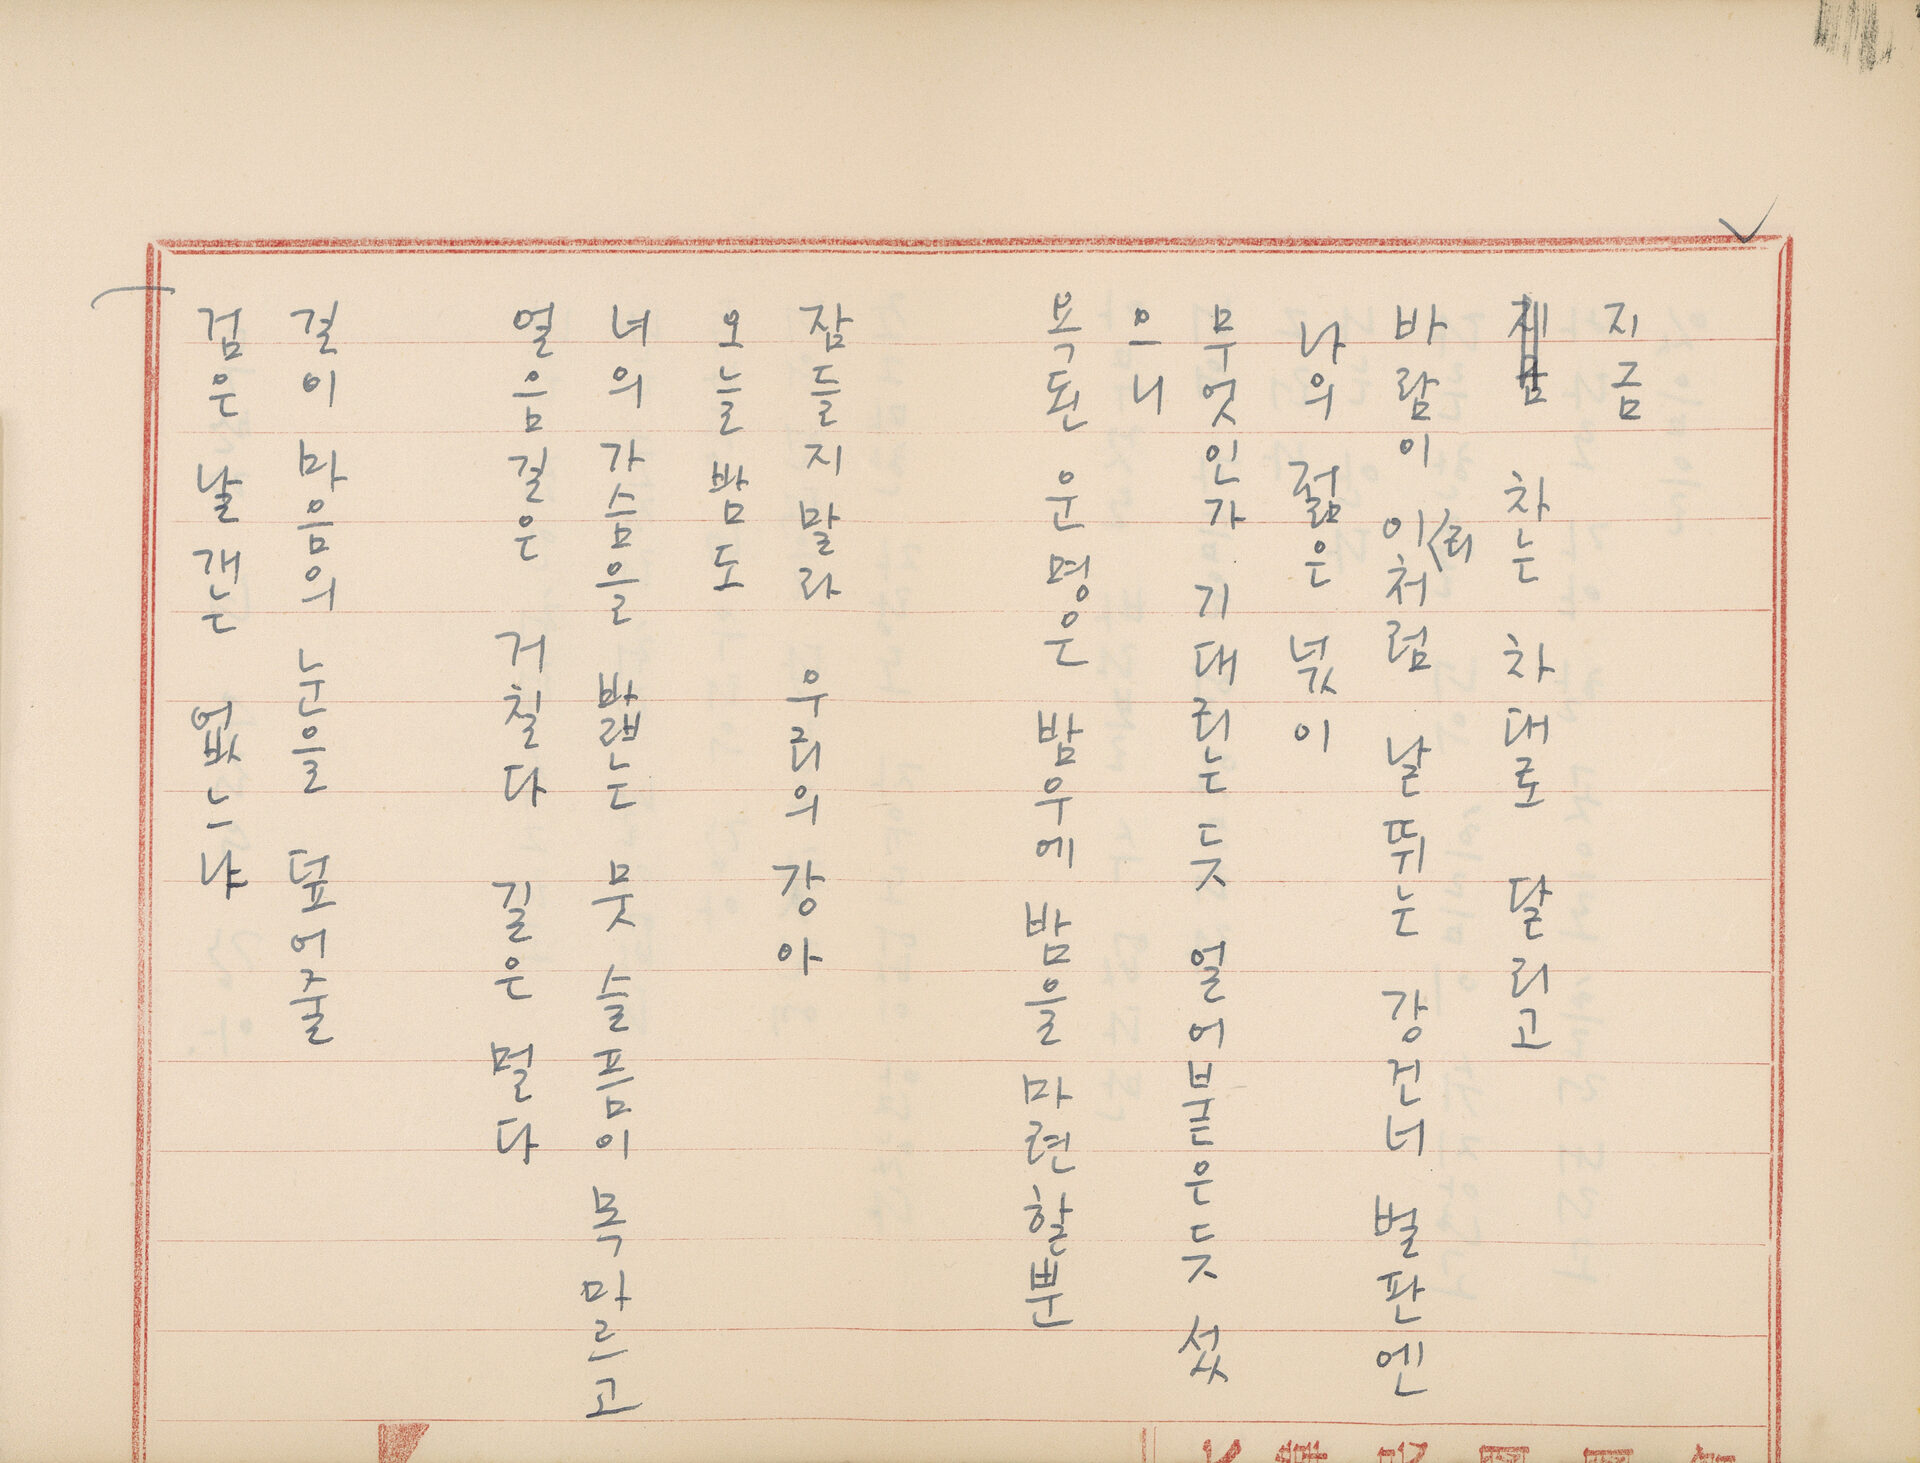 지금
차는 차대로 달리고
바람이 이리처럼 날뛰는 강건너 벌판엔
나의 젊은 넋이
무엇인가 기대리는듯 얼어붙은듯 섰
으니
욕된 운명은 밤우에 밤을 마련할뿐
잠들지말라 우리의 강아
오늘밤도
너의 가슴을 밟는 뭇 슬픔이 목마르고
얼음길은 거칠다 길은 멀다
길이 마음의 눈을 덮어줄
검은 날개는 없느냐